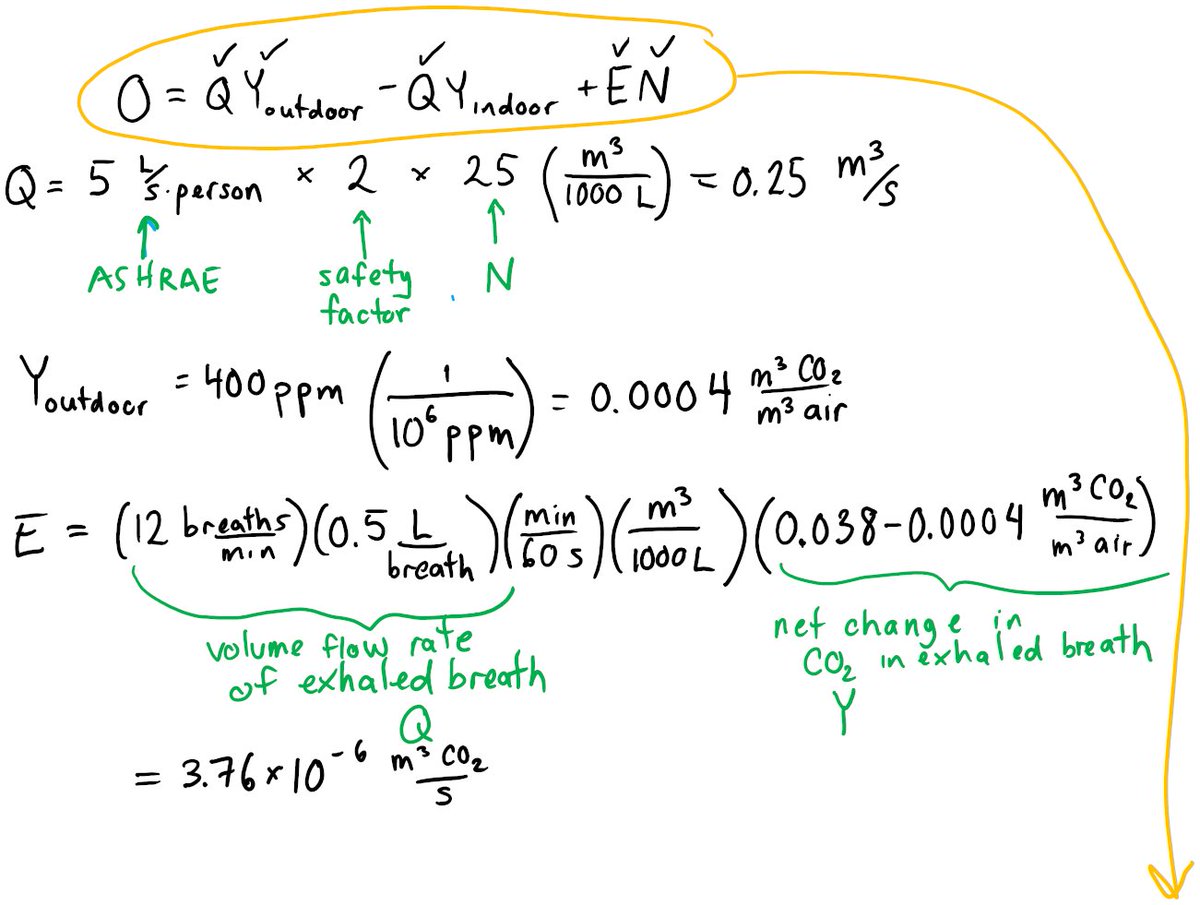 0 = Q Y outdoor - Q Y indoor + E N
Q = 5 L/s·person × 2 × 25 (m³/1000 L) = 0.25 m³/s
ASHRAE safety factor N
Y outdoor = 400 ppm (1/10⁶ ppm) = 0.0004 m³ CO₂/m³ air
E = (12 breaths/min)(0.5 L/breath)(min/60 s)(m³/1000 L)(0.038 - 0.0004 m³ CO₂/m³ air)
volume flow rate of exhaled breath Q
net change in CO₂ in exhaled breath Y
= 3.76 × 10⁻⁶ m³ CO₂/s